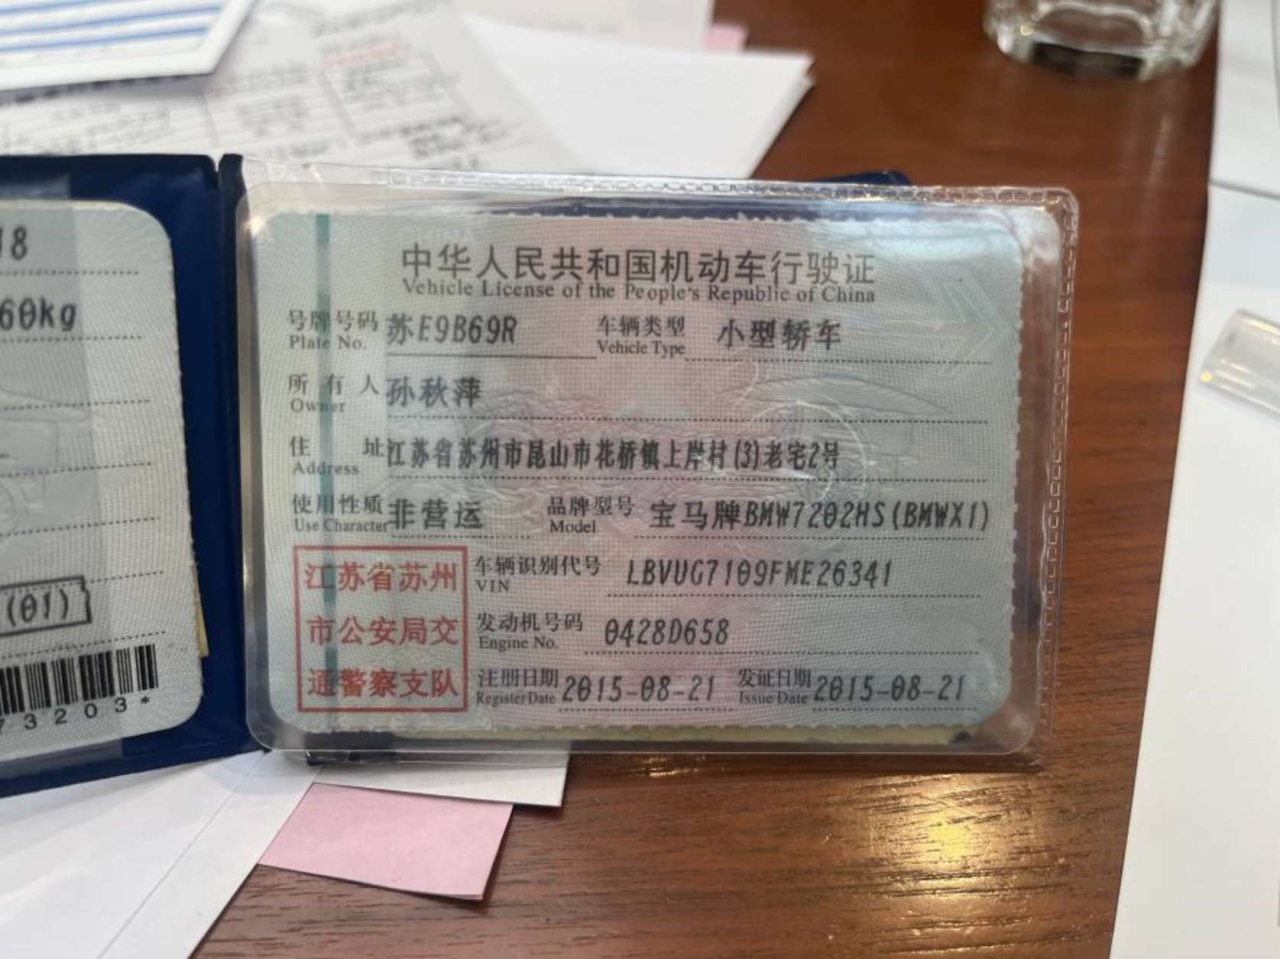 18
60kg
(01)
73203*
中华人民共和国机动车行驶证
Vehicle License of the People's Republic of China
号牌号码 苏E9B69R 车辆类型 小型轿车
Plate No. Vehicle Type
所有人 孙秋萍
Owner
住址 江苏省苏州市昆山市花桥镇上岸村(3)老宅2号
Address
使用性质 非营运 品牌型号 宝马牌BMW7202HS(BMWX1)
Use Character Model
江苏省苏州
市公安局交
通警察支队
车辆识别代号 LBVUG7109FME26341
VIN
发动机号码 0428D658
Engine No.
注册日期 2015-08-21 发证日期 2015-08-21
Register Date Issue Date